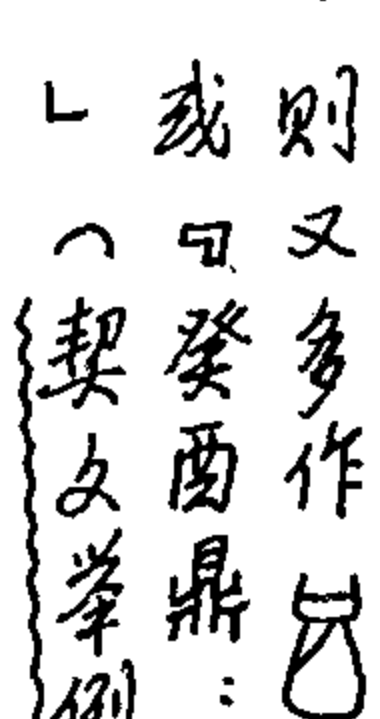 则又多作
或﹃癸酉鼎：
」（契文举例